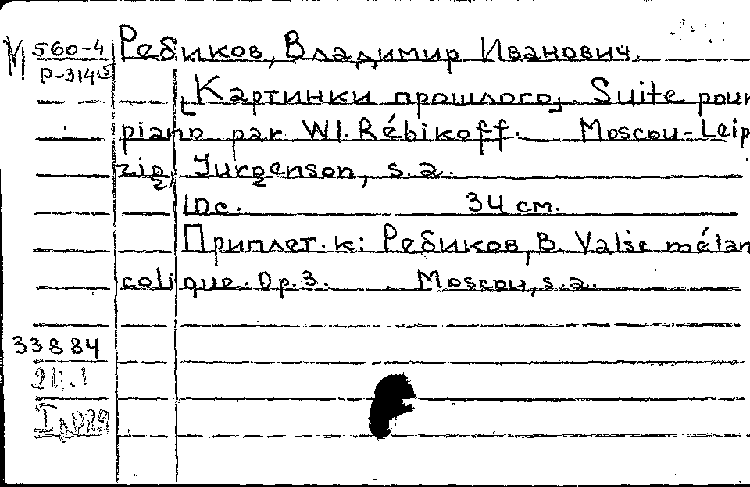 М 560-4 Ребиков, Владимир Иванович.
Р-314
[Картинки прошлого] Suite pour
piano par Wl. Rébikoff. Moscou-Leip
zig, Jurgenson, s.a.
10с. 34 см.
Приплет. к: Ребиков, В. Valse mélan
colique. Op. 3. Moscou, s.a.
33884